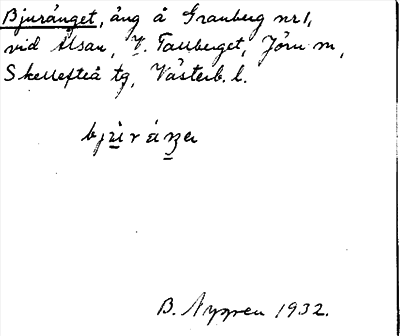 Bjuränget, äng å Granberg nr 1,
vid Ålsån, V. Tallberget, Jörn sn,
Skellefteå tg, Västerb. l.
B. Nygren 1932.